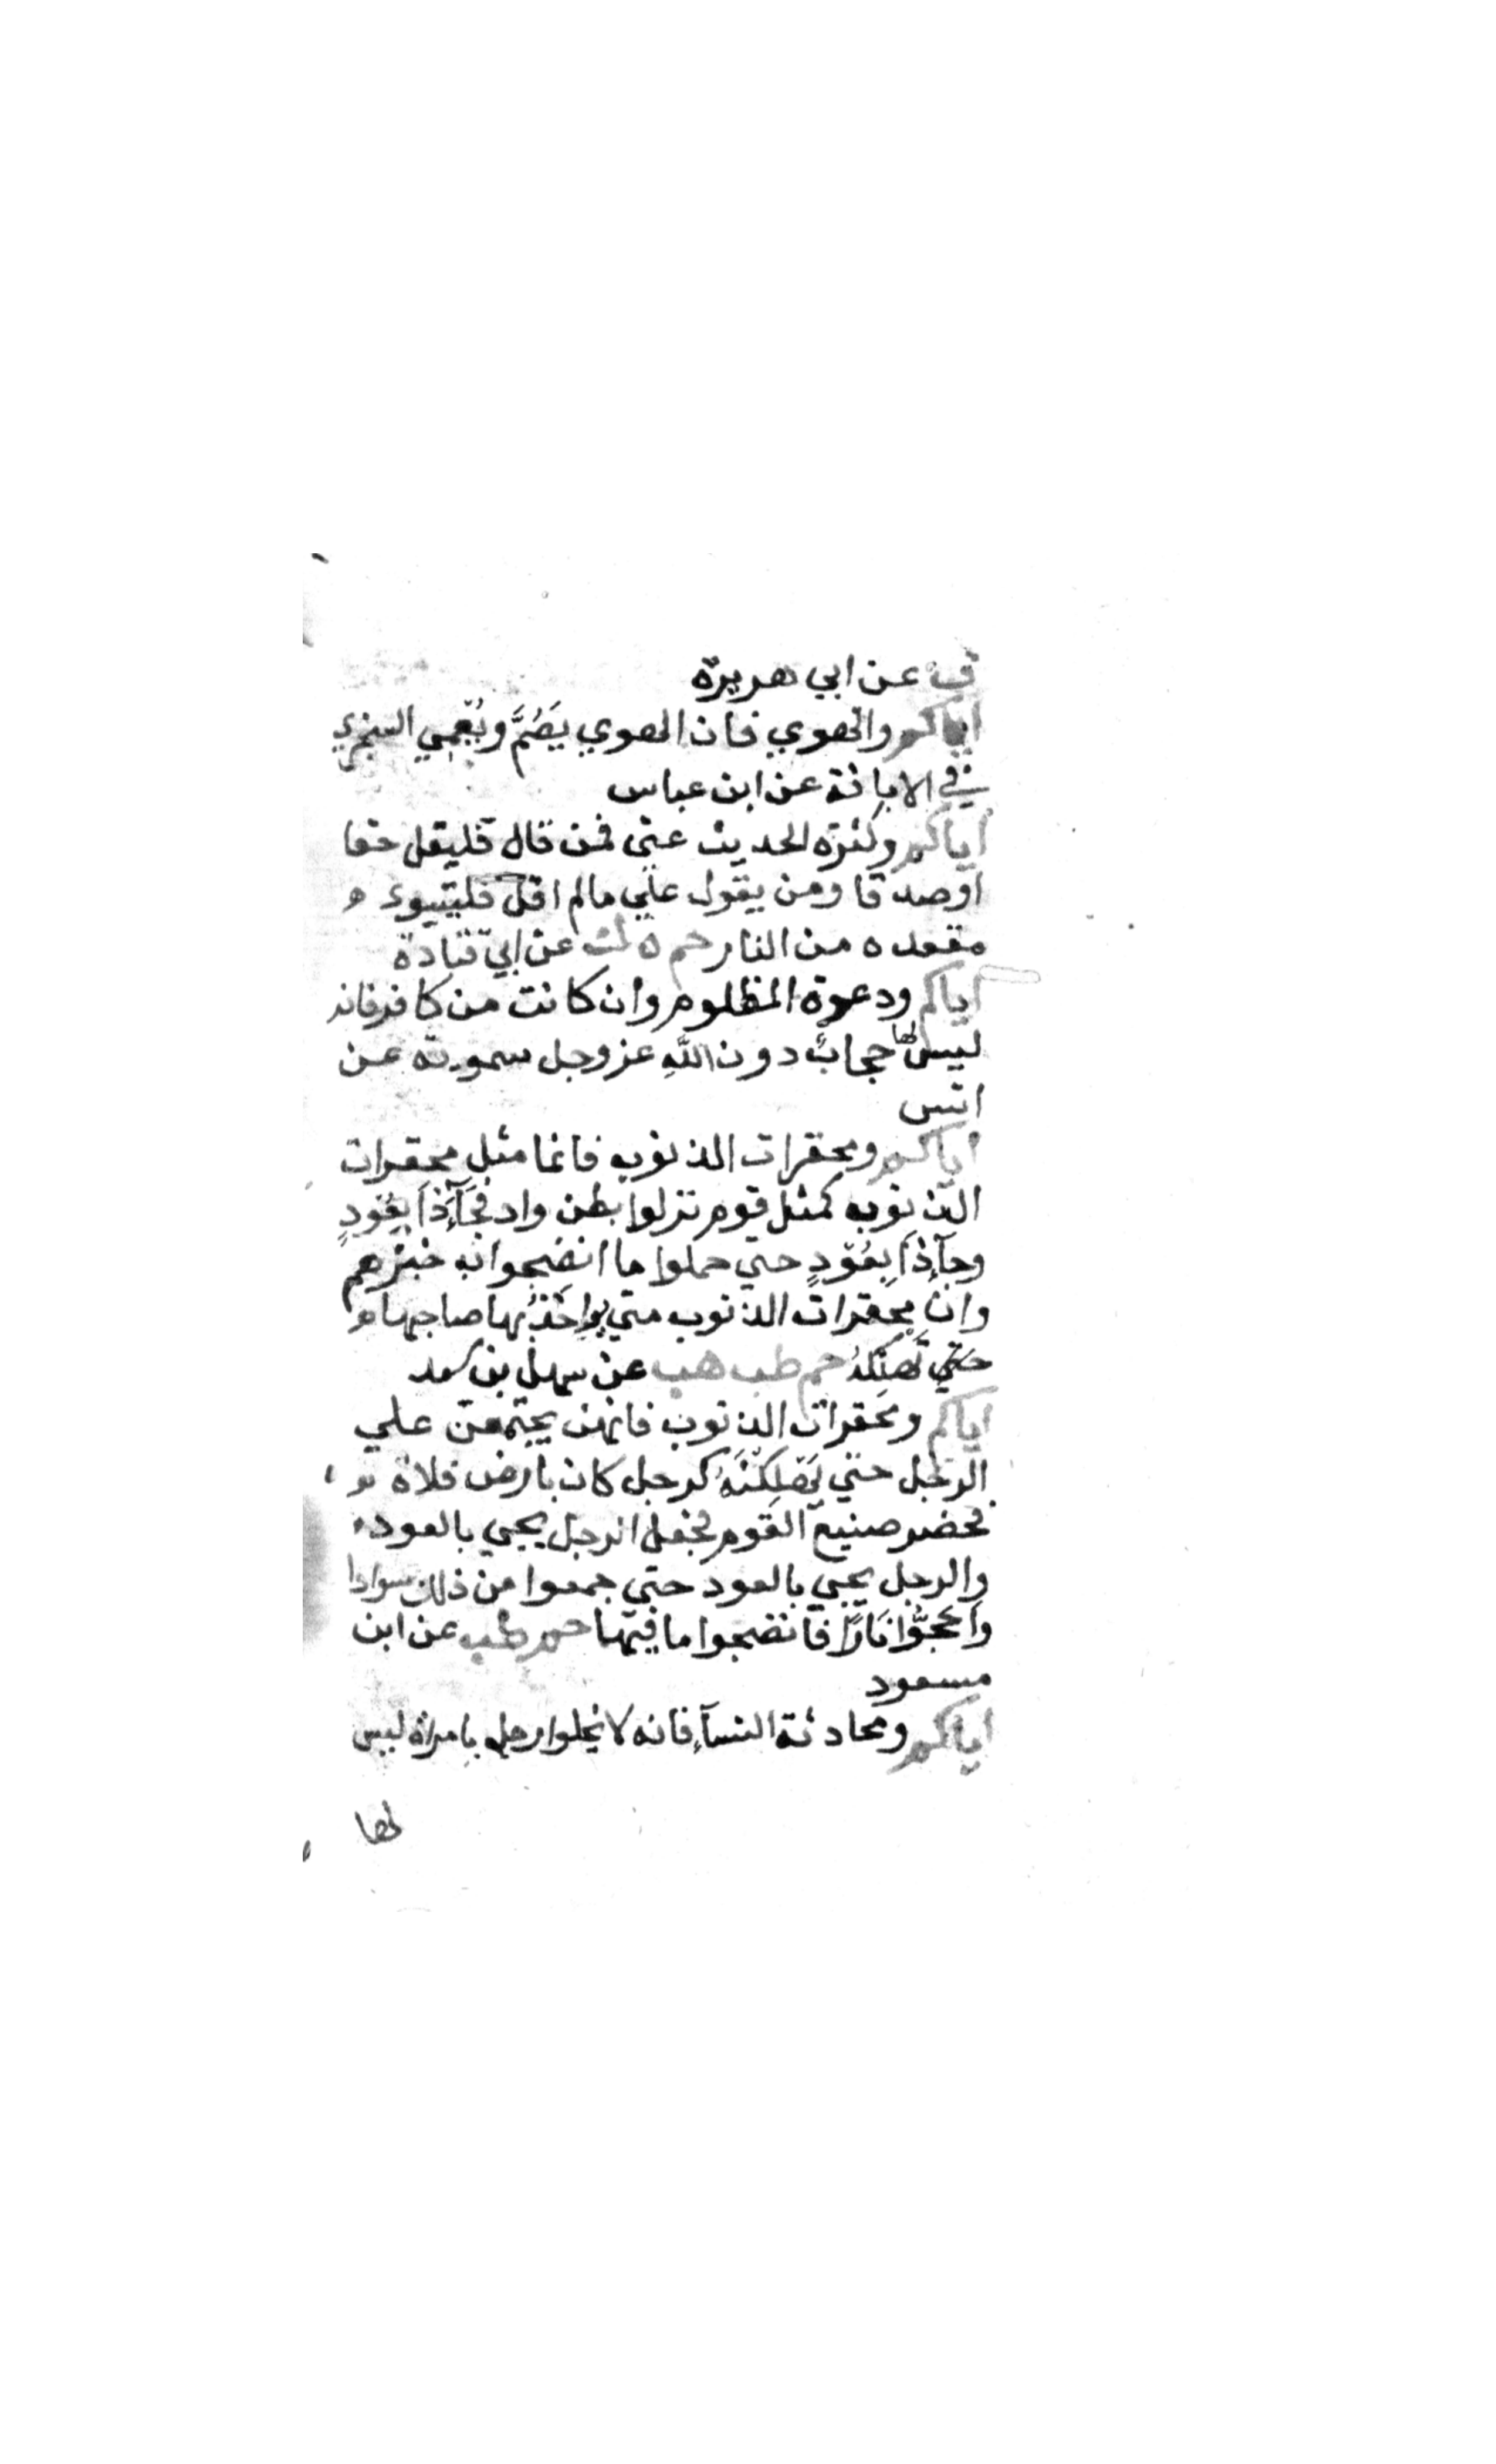 ق عن ابي هريرة
اياكم والهوي فان الهوي يَصُمَّ ويُعمِي السنجري
في الابانة عن ابن عباس
اياكم وكثرة الحديث عني فمن قال فليقل حقا
اوصدقا ومن يقول علي مالم اقل فليتبوء
مقعده من النار حم ه ك عن ابي قتادة
اياكم ودعوة المظلوم وان كانت من كافر فانه
ليس لها حجابٌ دون اللهِ عز وجل سمويه عن
انس
اياكم ومحقرات الذنوب فانما مثل محقرات
الذنوب كمثل قوم نزلوا بطن واد فجآء ذا بِعُودٍ
وجآء ذا بِعُودٍ حتي حملوا ما انضجوا به خبزهم
وان محقرات الذنوب متي يواخذ بها صاحبها
حتي تهلكهُ حم طب هب عن سهل بن سعد
اياكم ومحقرات الذنوب فانهن يجتمعن علي
الرجل حتي يهلكنَهُ كرجل كان بارض فلاة
فحضر صنيع القوم فجعل الرجل يجي بالعود
والرجل يجي بالعود حتي جمعوا من ذلك سوادا
واججُّوا نارًا فانضجوا ما فيها حم طب عن ابن
مسعود
اياكم ومحادثة النسآء فانه لا يخلوا رجل بامراة ليس
لها